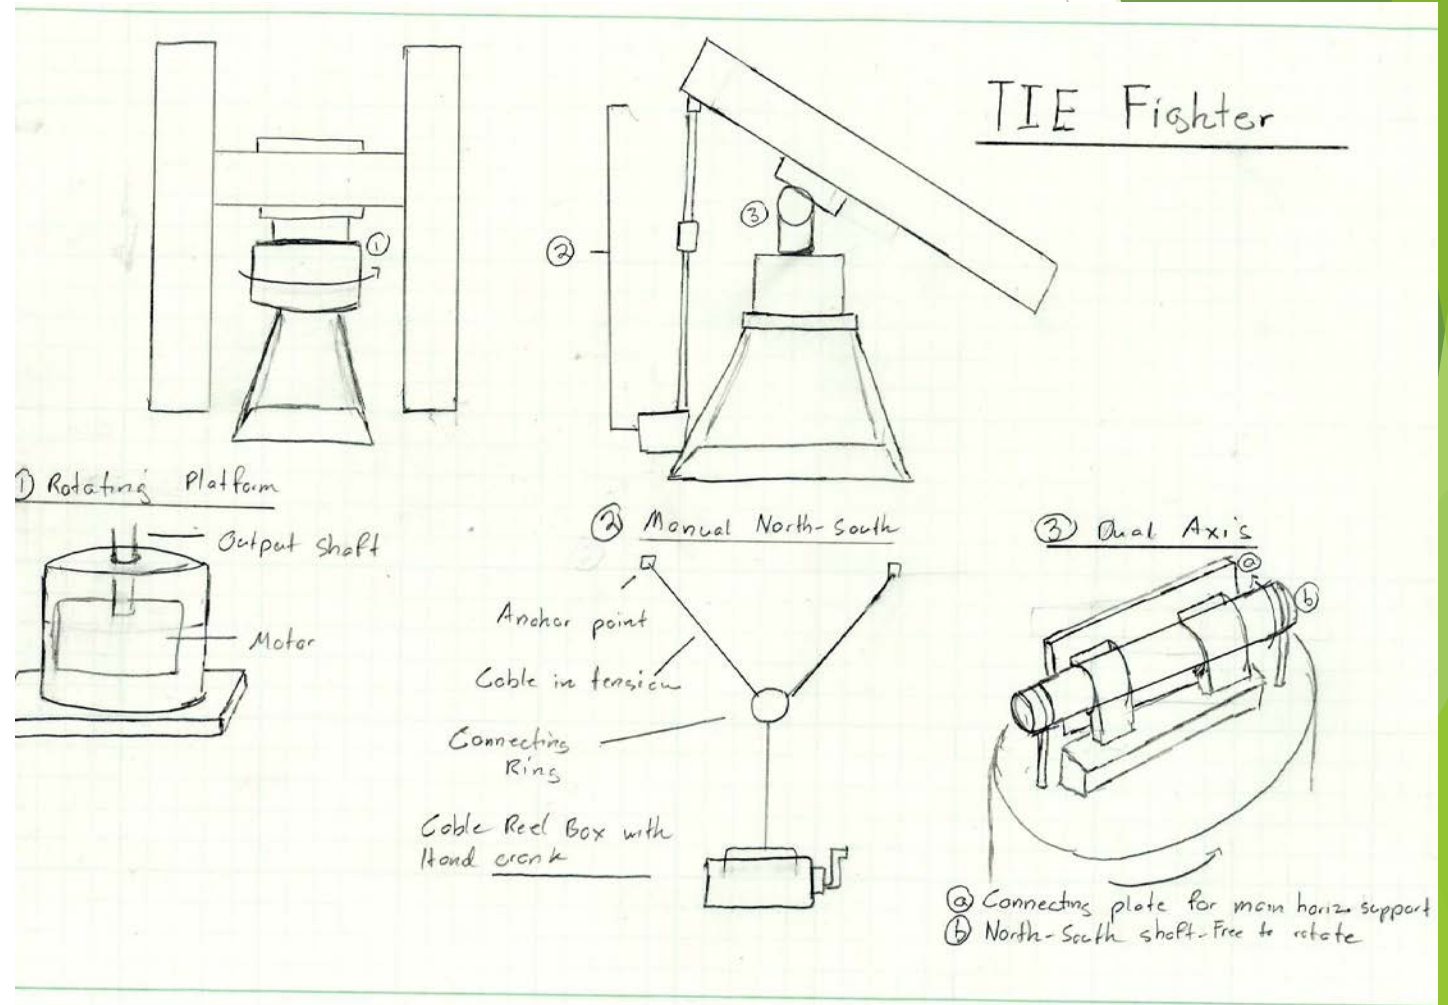 TIE Fighter
①
②
③
① Rotating Platform
Output shaft
Motor
② Manual North-South
Anchor point
Cable in tension
Connecting
Ring
Cable Reel Box with
Hand crank
③ Dual Axis
ⓐ
ⓑ
ⓐ Connecting plate for main horiz. support
ⓑ North-South shaft-Free to rotate